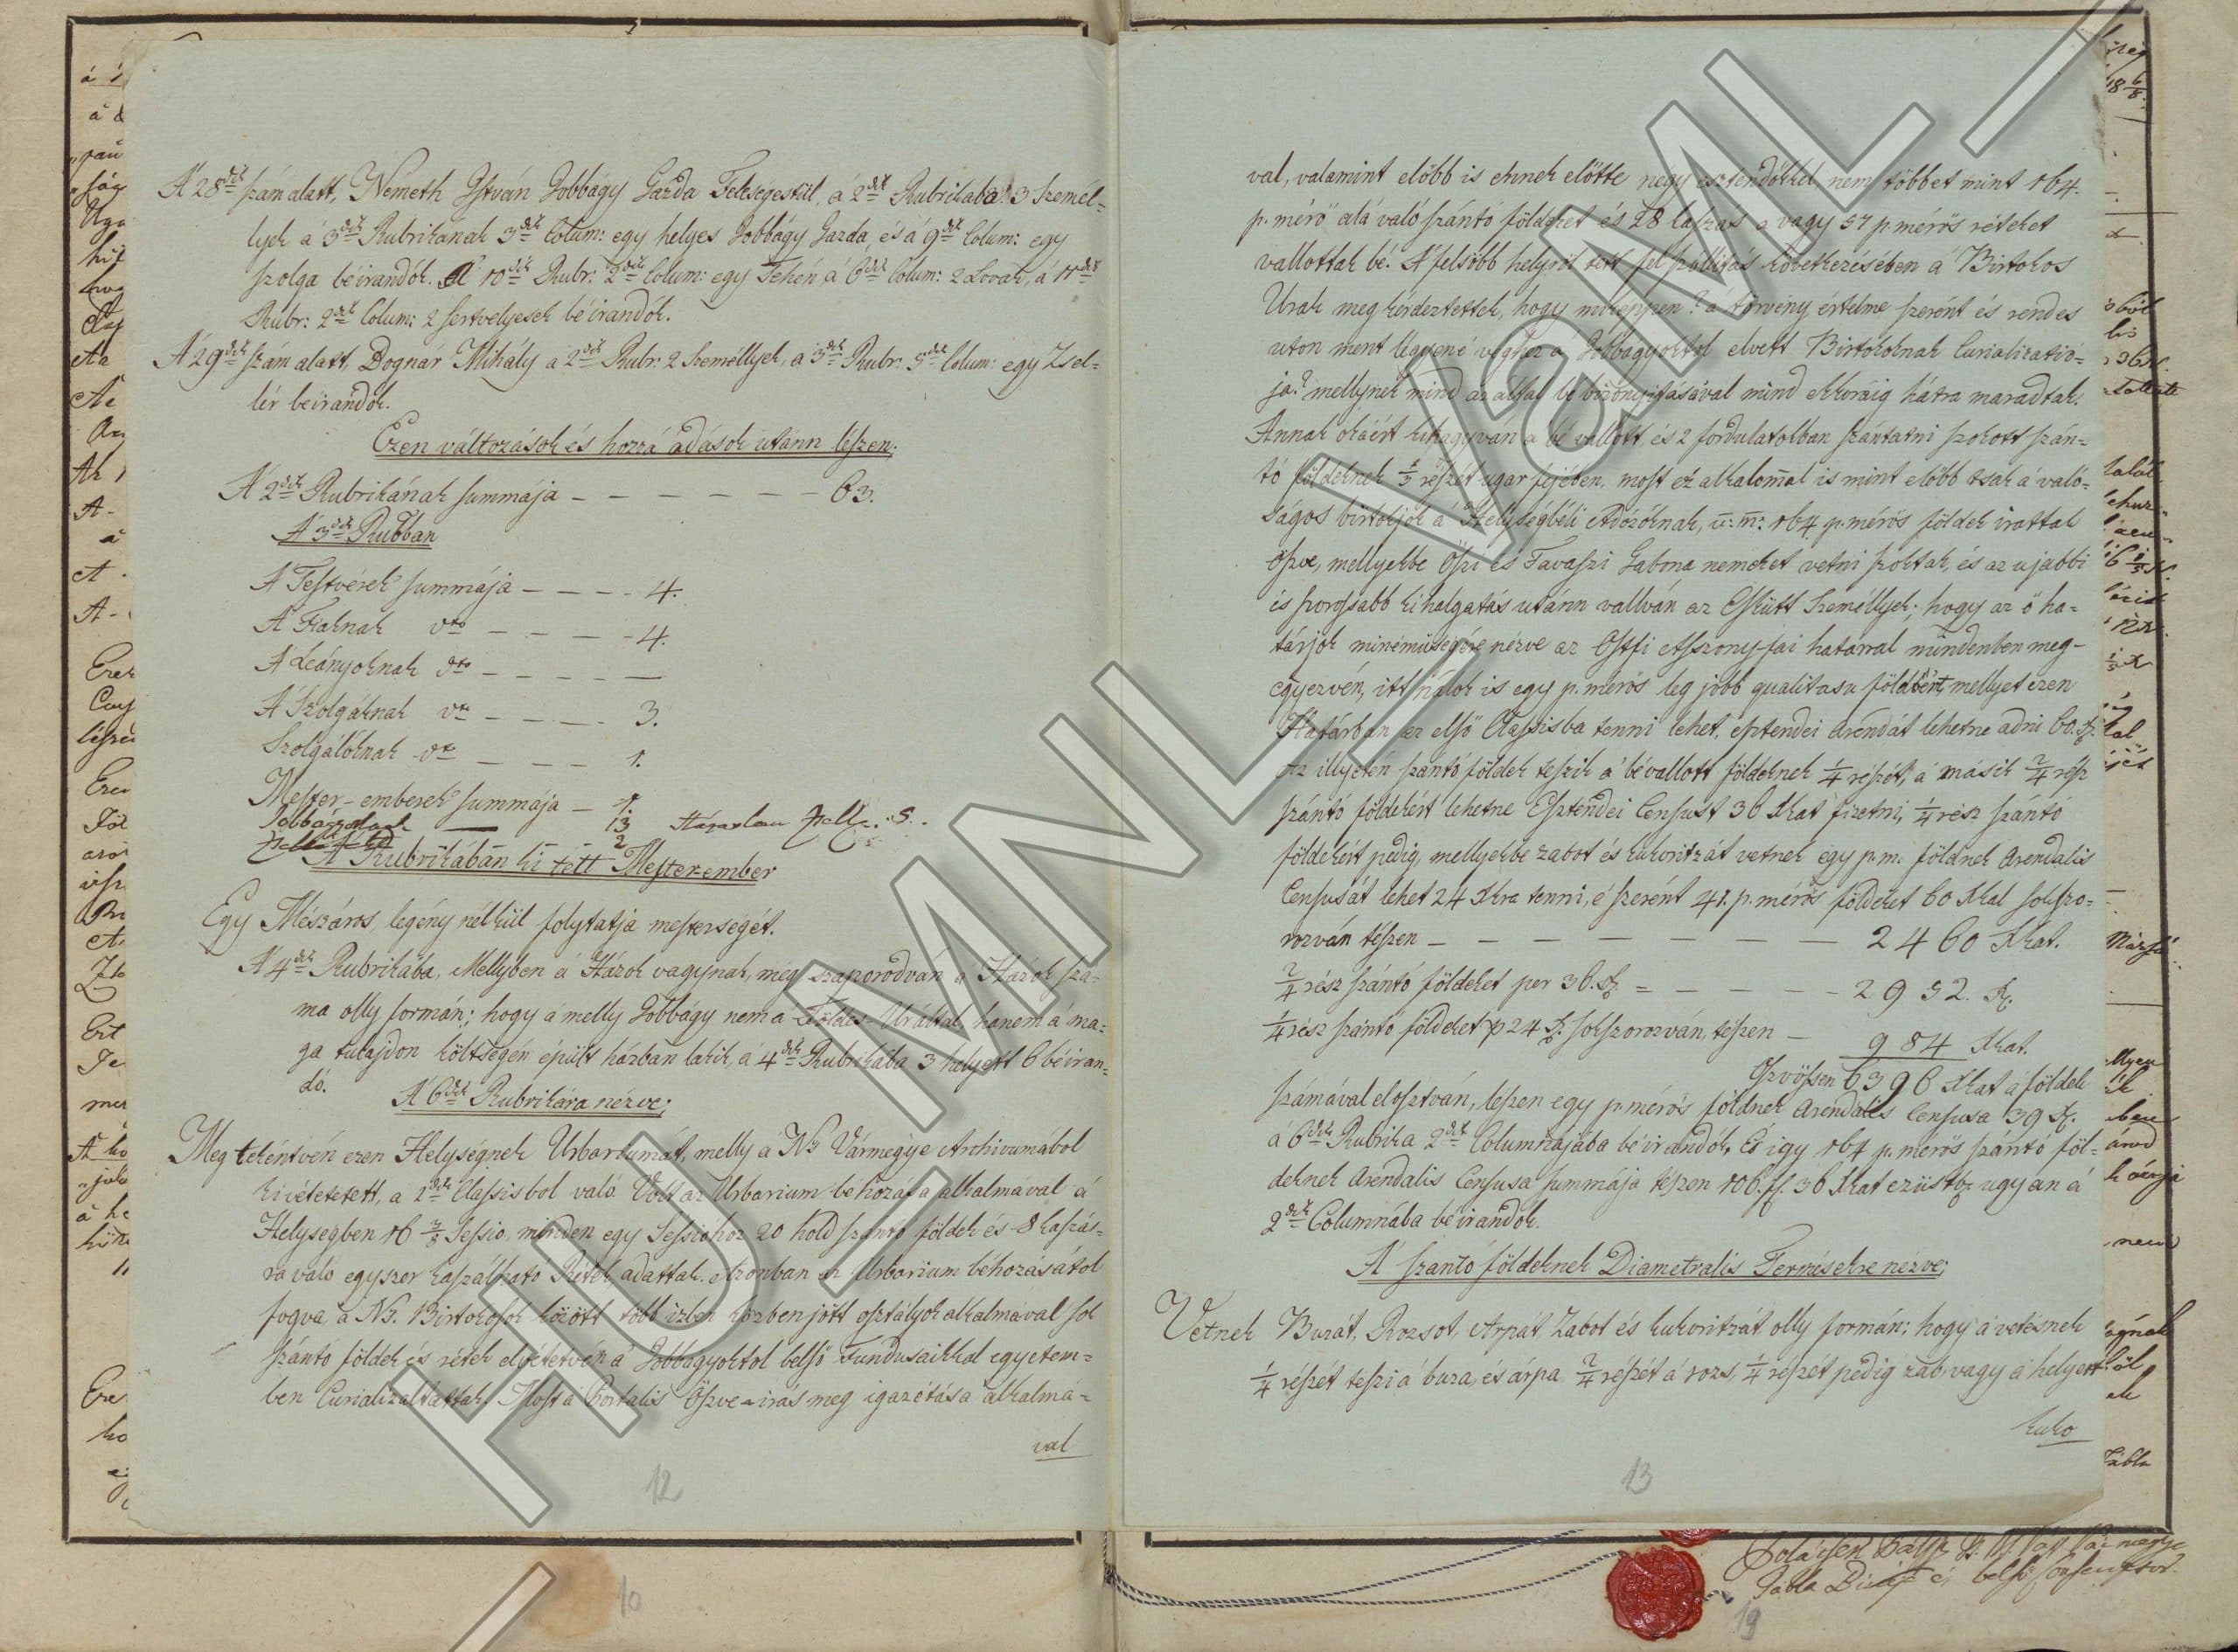 A' 28dik szám alatt, Németh István Jobbágy Gazda Feleségestül, á 2dik Rubrikaba 3 Személ=
lyek á 3dik Rubrikának 3dik Colum: egy helyes Jobbágy Gazda, és á 9dik Colum: egy
szolga béirandók. A' 10dik Rubr: 2dik Colum: egy Tehén á 6dik Colum: 2 Lovak, á 11dik
Rubr: 2dik Colum: 2 sertvélyesek béirandók.
A' 29dik szám alatt, Bognár Mihály á 2dik Rubr: 2 Személlyek, á 3dik Rubr: 5dik Colum: egy Zsel=
lér beirandók.
Ezen változások és hozzá adások utánn lészen;
A' 2dik Rubrikának summája - - - - - - - 63.
A' 3dik Rubban
A' Testvérek summája - - - - 4.
A' Fiaknak dto - - - - - 4.
A' Leányoknak dto - - - - - —
A' Szolgáknak dto - - - - 3.
Szolgálóknak dto - - - - 1.
Mester-emberek summája - 1.
13
2
A' Rubrikában ki tett Mesterember
Egy Mészáros, legény nélkül folytatja mesterségét.
A' 4dik Rubrikába, Mellyben á Házok vagynak, meg szaporodván á Házok szá=
ma olly formán; hogy á melly Jobbágy nem a Földes-Ur által, hanem á ma=
ga tulajdon költségén épült házban lakik, á 4dik Rubrikába 3 helyett 6 béiran=
dó.
A' 6dik Rubrikára nézve;
Meg tekéntvén ezen Helységnek Urbariumát, melly á Ns Vármegye Archivumából
kivétetetett, a 2dik Classisbol való. Volt az Urbarium béhozása alkalmával á
Helységben 16 3/8 Sessio, minden egy Sessióhoz 20 hold szántó földek és 8 kaszás=
ra való egyszer kaszálható Rétek adattak. Azonban az Urbarium béhozásától
fogva, a Ns. Birtokosok között több izben közben jött osztályok alkalmával sok
szántó földek és rétek elvétetvén á Jobbágyoktol belső Fundusaikkal egyetem=
ben Curializáltattak. Most á Portalis Öszve-irás meg igazétása alkalmá=
val
12
val, valamint előbb is ennek előtte négy esztendőkkel, nem többet mint 164.
p. mérő alá való szántó földeket és 28 kaszás a vagy 57 p. mérős réteket
vallottak bé. A' felsőbb helyről tett fel szóllitás következésében á Birtokos
Urak meg kérdeztettek, hogy miképpen? á törvény értelme szerént és rendes
uton ment légyené véghez á Jobbágyoktol elvett Birtokoknak Curializatió=
ja? mellynek mind az által bé bizonyitásával mind ekkoráig hátra maradtak.
Annak okáért kihagyván a bé vallott, és 2 fordulatokban szántatni szokott szán=
tó földeknek 1/3 részét ugar fejében, most ez alkalommal is mint előbb tsak á való=
ságos birtokjok á Helységbéli Adózóknak, u: m: 164 p. mérős földek irattak
öszve, mellyekbe Őszi és Tavaszi Gabona nemeket vetni szoktak, és az ujabbi
és szorossabb kihalgatás utánn vallván az Esküdt Személlyek; hogy az ő ha=
tárjok minéműségére nézve az Ostfi Asszony-fai határral mindenben meg=
egyezvén, itt nálok is egy p. mérős leg jobb qualitasu földért, mellyet ezen
Határban az első Classisba tenni lehet, esztendei árendát lehetne adni 60. X.
Az illyetén szántó földek teszik á bévallott földeknek 1/4 részét, á másik 2/4 rész
szántó földekért lehetne Esztendei Censust 36 Xkat fizetni, 1/4 rész szántó
földekért pedig, mellyekbe zabot és kukoritzát vetnek egy p. m. földnek Arendalis
Censusát lehet 24 Xkra tenni, é szerént 41. p. mérős földeket 60 Xkal sokszo=
rozván tészen - - - - - - - 2460 Xkat.
2/4 rész szántó földeket per 36. X. - - - - - 2952. X.
1/4 rész szántó földeket p 24 X. sokszorozván, tészen - 984 Xkat.
Öszvössen 6396 Xkat á földek
számával elosztván, lészen egy p. mérős földnek Arendalis Censusa 39 X.
á 6dik Rubrika 2dik Columnájába béirandók, és igy 164 p. mérős szántó föl=
deknek Arendalis Censusa summája tészen 106. f. 36 Xkat ezüstb. ugyan á
2dik Columnába béirandók.
A' szántó földeknek Diametralis Termésekre nézve;
Vetnek Buzát, Rozsot, Árpát, Zabot és kukoritzát olly formán; hogy á vetésnek
1/4 részét teszi á buza, és árpa 2/4 részét á rozs, 1/4 részét pedig zab, vagy á helyett
kuko
13
10
19